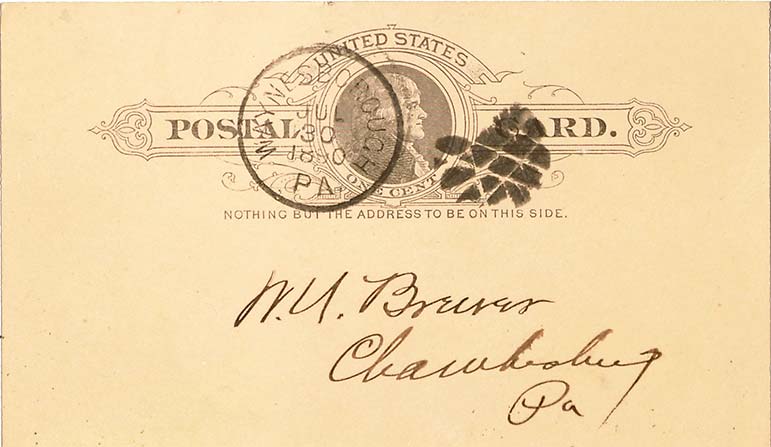 UNITED STATES
POSTAL CARD.
ONE CENT
WAYNESBOROUGH
30
1890
PA.
NOTHING BUT THE ADDRESS TO BE ON THIS SIDE.
W. U. Brewer
Chambersburg
Pa